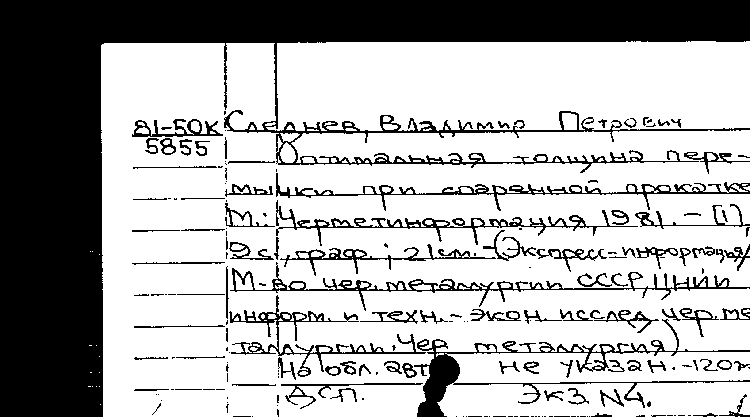 81-50К Следнев, Владимир Петрович
5855 Оптимальная толщина пере-
мычки при спаренной прокатке
М.: Черметинформация, 1981. - [1],
9 с., граф. ; 21 см. - (Экспресс-информация/
М-во чер. металлургии СССР, ЦНИИ
информ. и техн.-экон. исслед. чер. ме
таллургии. Чер металлургия).
На обл. авт не указан. -120
ДСП. Экз. N4.